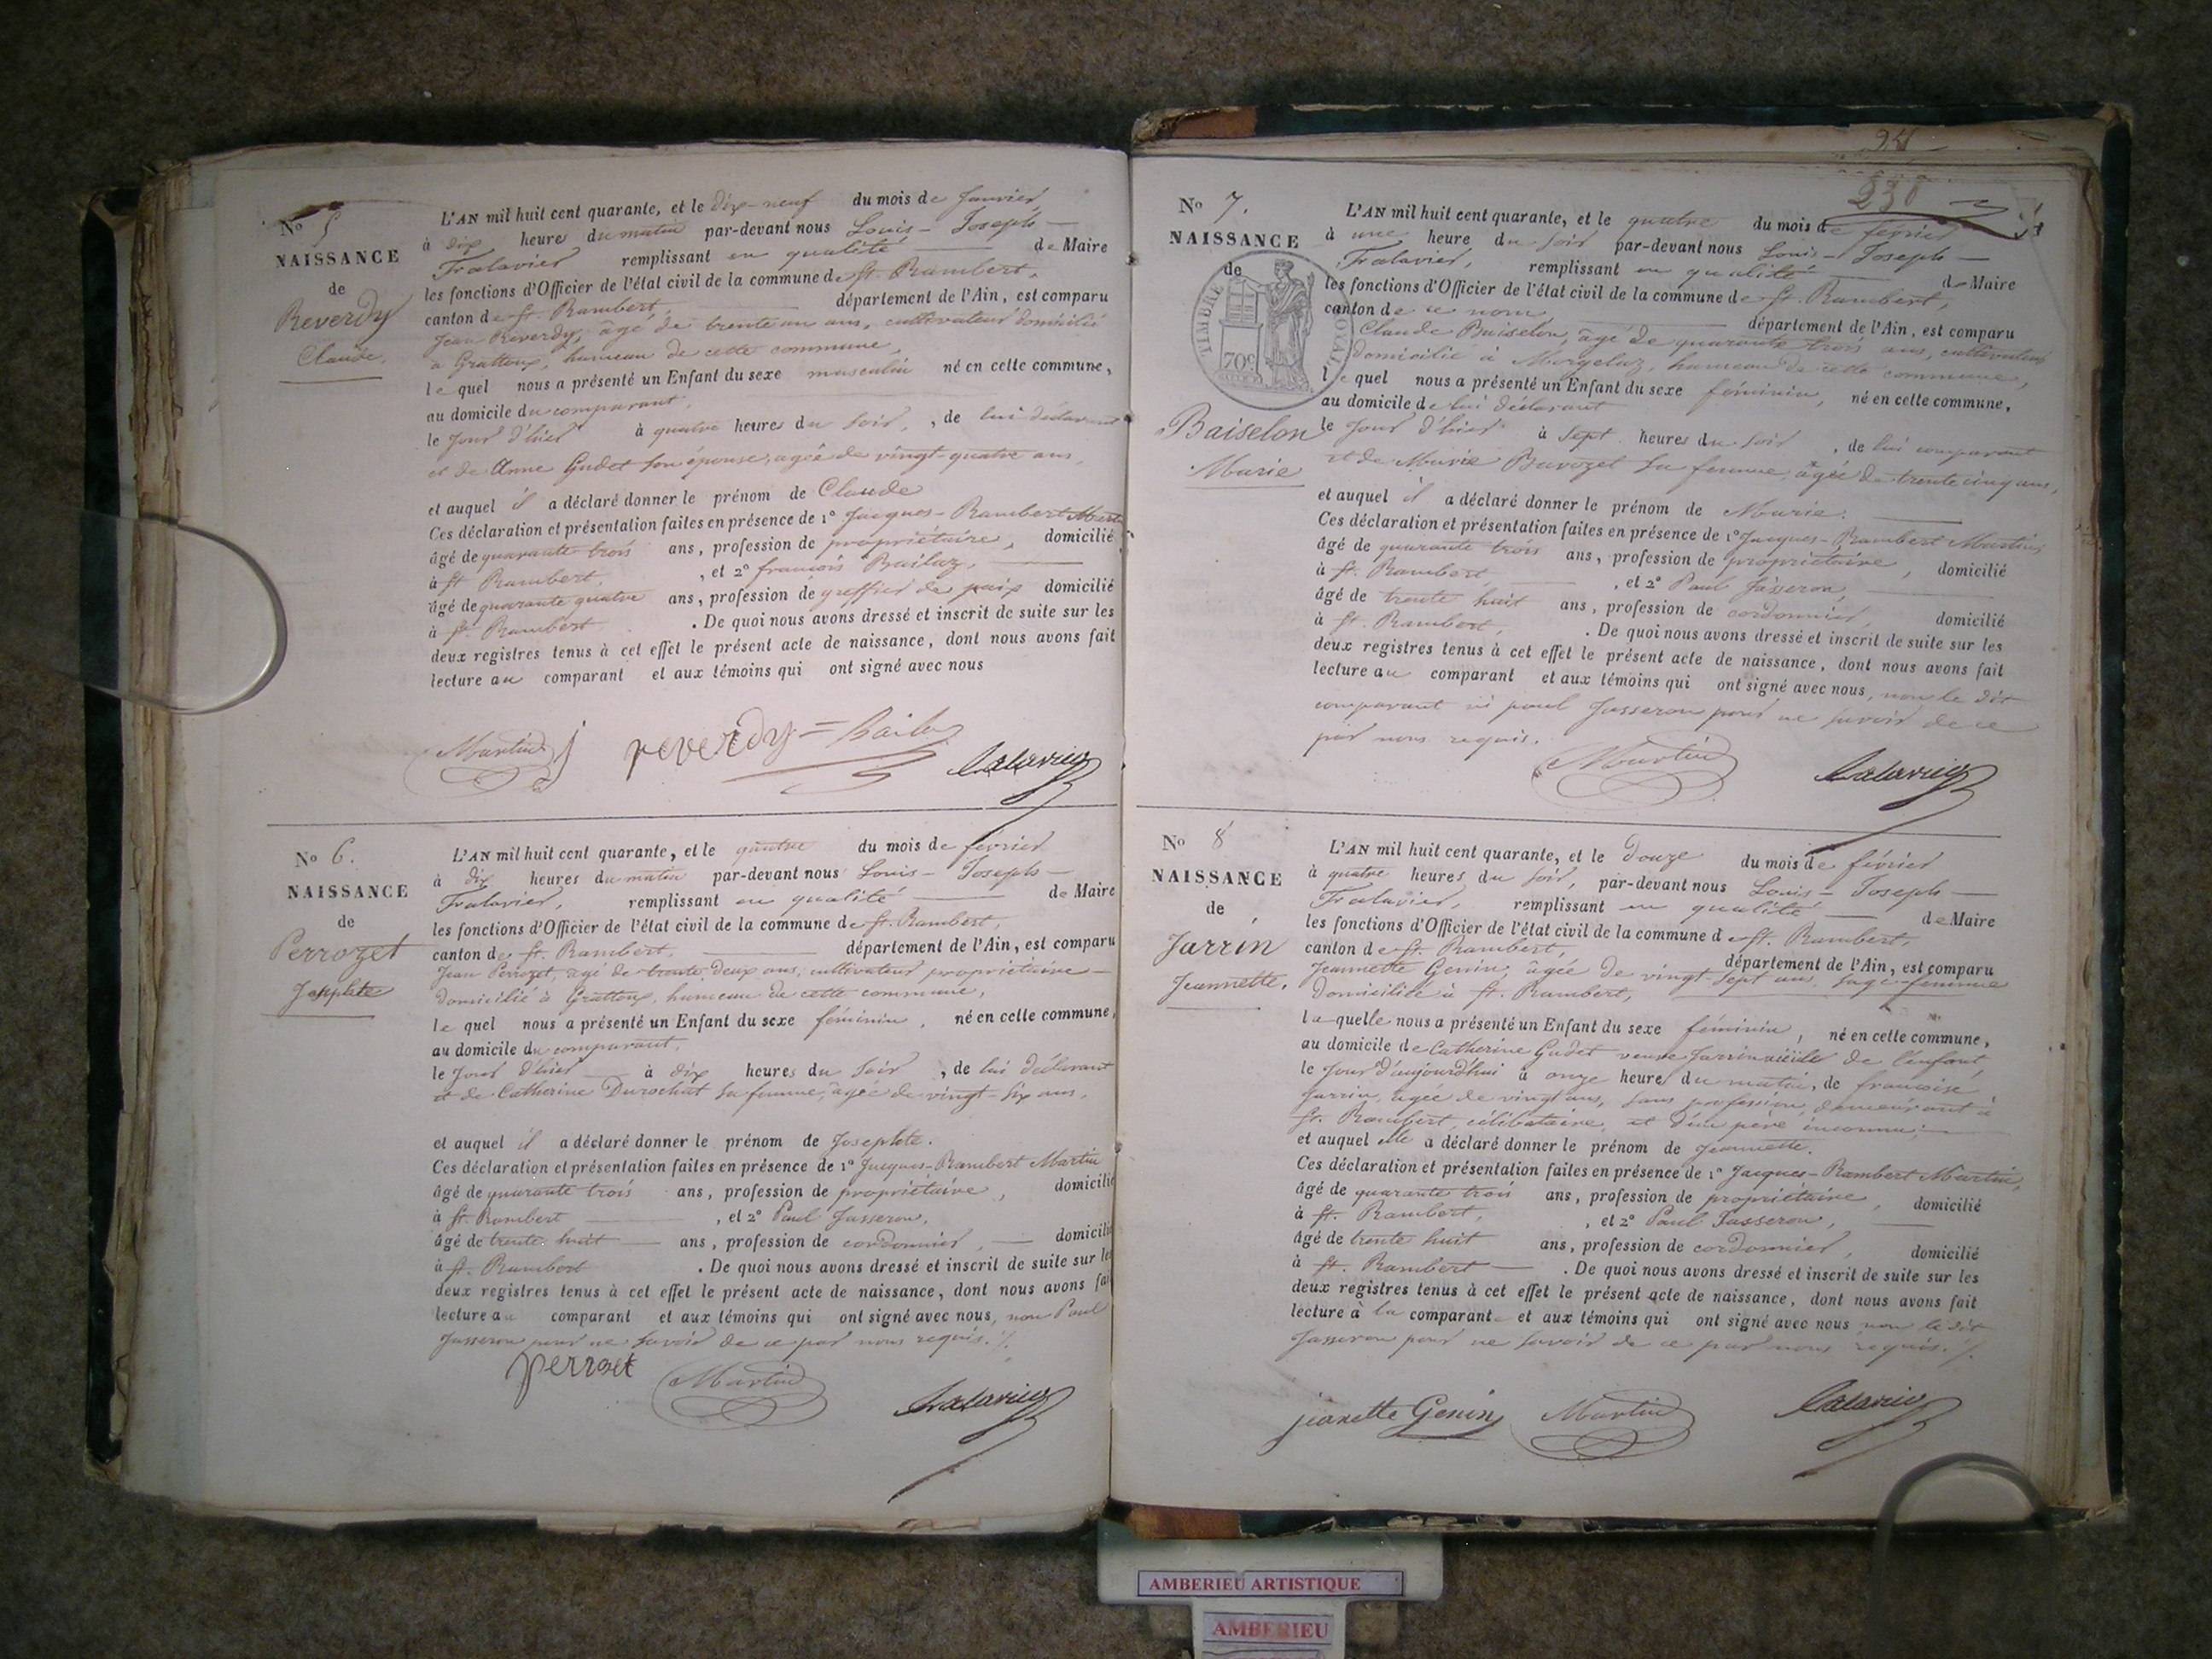 No 5
NAISSANCE
de
Reverdy
Claude.
L'AN mil huit cent quarante, et le dix-neuf du mois de Janvier
à dix heures du matin par-devant nous Louis-Joseph
remplissant en qualité de Maire
les fonctions d'Officier de l'état civil de la commune de St. Rambert,
canton de St. Rambert, département de l'Ain, est comparu
Jean Reverdy, âgé de trente un ans, cultivateur domicilié
à Grattoux, hameau de cette commune,
le quel nous a présenté un Enfant du sexe masculin né en cette commune,
au domicile du comparant,
le jour d'hier à quatre heures du soir, , de lui déclarant
et de Anne Gudet son épouse, agée de vingt-quatre ans,
et auquel il a déclaré donner le prénom de Claude
Ces déclaration et présentation faites en présence de 1º Jacques-Rambert Martin
âgé de quarante trois ans, profession de propriétaire, domicilié
à St Rambert, , et 2º françois Bailaz,
âgé de quarante quatre ans, profession de greffier de paix domicilié
à St. Rambert . De quoi nous avons dressé et inscrit de suite sur les
deux registres tenus à cet effet le présent acte de naissance, dont nous avons fait
lecture au comparant et aux témoins qui ont signé avec nous
Martin reverdy
No 6.
NAISSANCE
de
Perrozet
Josephte
L'AN mil huit cent quarante, et le quatre du mois de février
à dix heures du matin par-devant nous Louis-Joseph
remplissant en qualité de Maire
les fonctions d'Officier de l'état civil de la commune de St. Rambert,
canton de St. Rambert, département de l'Ain, est comparu
Jean Perrozet, âgé de trente deux ans, cultivateur propriétaire
domicilié à Grattoux, hameau de cette commune,
le quel nous a présenté un Enfant du sexe féminin, né en cette commune,
au domicile du comparant,
le jour d'hier à dix heures du soir , de lui déclarant
et de Catherine Durochat sa femme, âgée de vingt-six ans,
et auquel il a déclaré donner le prénom de Josephte.
Ces déclaration et présentation faites en présence de 1º Jacques-Rambert Martin
âgé de quarante trois ans, profession de propriétaire, domicilié
à St. Rambert , et 2º Paul Jasseron,
âgé de trente huit ans, profession de cordonnier, domicilié
à St. Rambert . De quoi nous avons dressé et inscrit de suite sur les
deux registres tenus à cet effet le présent acte de naissance, dont nous avons fai
lecture au comparant et aux témoins qui ont signé avec nous, non Paul
Jasseron pour ne savoir de ce par nous requis.
Martin
94
230
No 7.
NAISSANCE
de
TIMBRE ROYAL
70c
Baiselon
Marie
L'AN mil huit cent quarante, et le quatre du mois de février
à une heure du soir par-devant nous Louis-Joseph
remplissant en qualité de Maire
les fonctions d'Officier de l'état civil de la commune de St. Rambert,
canton de ce nom, département de l'Ain, est comparu
Claude Baiselon, âgé de quarante trois ans, cultivateur
domicilié à Morgelaz, hameau de cette commune,
le quel nous a présenté un Enfant du sexe féminin, né en cette commune,
au domicile de lui déclarant
le jour d'hier à sept heures du soir , de lui comparant
et de Marie Bavozet sa femme, âgée de trente cinq ans,
et auquel il a déclaré donner le prénom de Marie.
Ces déclaration et présentation faites en présence de 1º Jacques-Rambert Martin,
âgé de quarante trois ans, profession de propriétaire, domicilié
à St. Rambert , et 2º Paul Jasseron,
âgé de trente huit ans, profession de cordonnier, domicilié
à St. Rambert, . De quoi nous avons dressé et inscrit de suite sur les
deux registres tenus à cet effet le présent acte de naissance, dont nous avons fait
lecture au comparant et aux témoins qui ont signé avec nous, non le dit
comparant ni paul Jasseron pour ne savoir de ce
par nous requis.
Martin
No 8
NAISSANCE
de
Jarrin
Jeannette.
L'AN mil huit cent quarante, et le Douze du mois de février
à quatre heures du soir, par-devant nous Louis-Joseph
remplissant en qualité de Maire
les fonctions d'Officier de l'état civil de la commune de St. Rambert,
canton de St. Rambert, département de l'Ain, est comparu
Jeannette Genin, âgée de vingt-sept ans, sage-femme
domiciliée à St. Rambert,
la quelle nous a présenté un Enfant du sexe féminin, né en cette commune,
au domicile de Catherine Gudet veuve Jarrin aïeule de l'enfant,
le jour d'aujourd'hui à onze heures du matin, de françoise
Jarrin, âgée de vingt ans, sans profession, demeurant à
St. Rambert, célibataire, et d'un père inconnu;
et auquel elle a déclaré donner le prénom de Jeannette.
Ces déclaration et présentation faites en présence de 1º Jacques-Rambert Martin,
âgé de quarante trois ans, profession de propriétaire, domicilié
à St. Rambert, , et 2º Paul Jasseron,
âgé de trente huit ans, profession de cordonnier, domicilié
à St. Rambert . De quoi nous avons dressé et inscrit de suite sur les
deux registres tenus à cet effet le présent acte de naissance, dont nous avons fait
lecture à la comparante et aux témoins qui ont signé avec nous non le dit
Jasseron pour ne savoir de ce par nous requis.
jeanette Genin Martin
AMBERIEU ARTISTIQUE
AMBERIEU